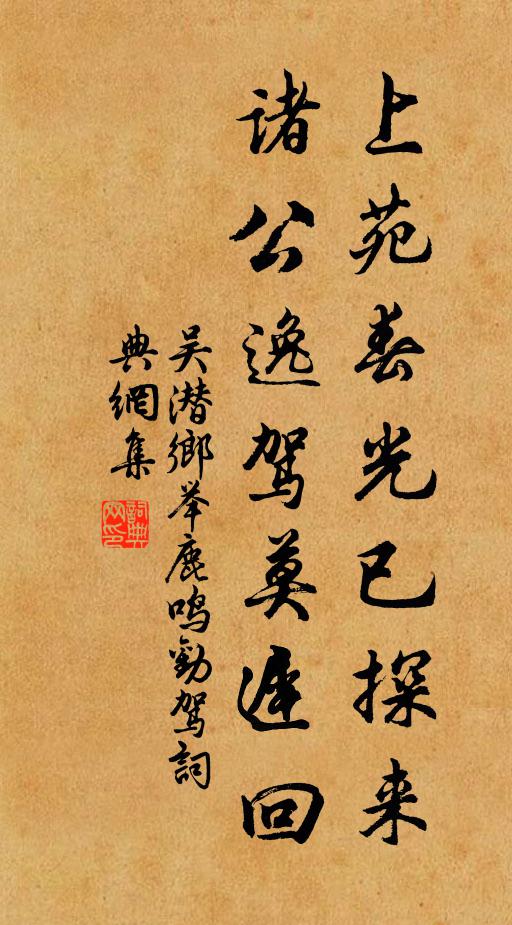 上苑春光已探来
诸公逸驾莫迟回
吴潜乡举鹿鸣劝驾词
典網集
詞典
网印